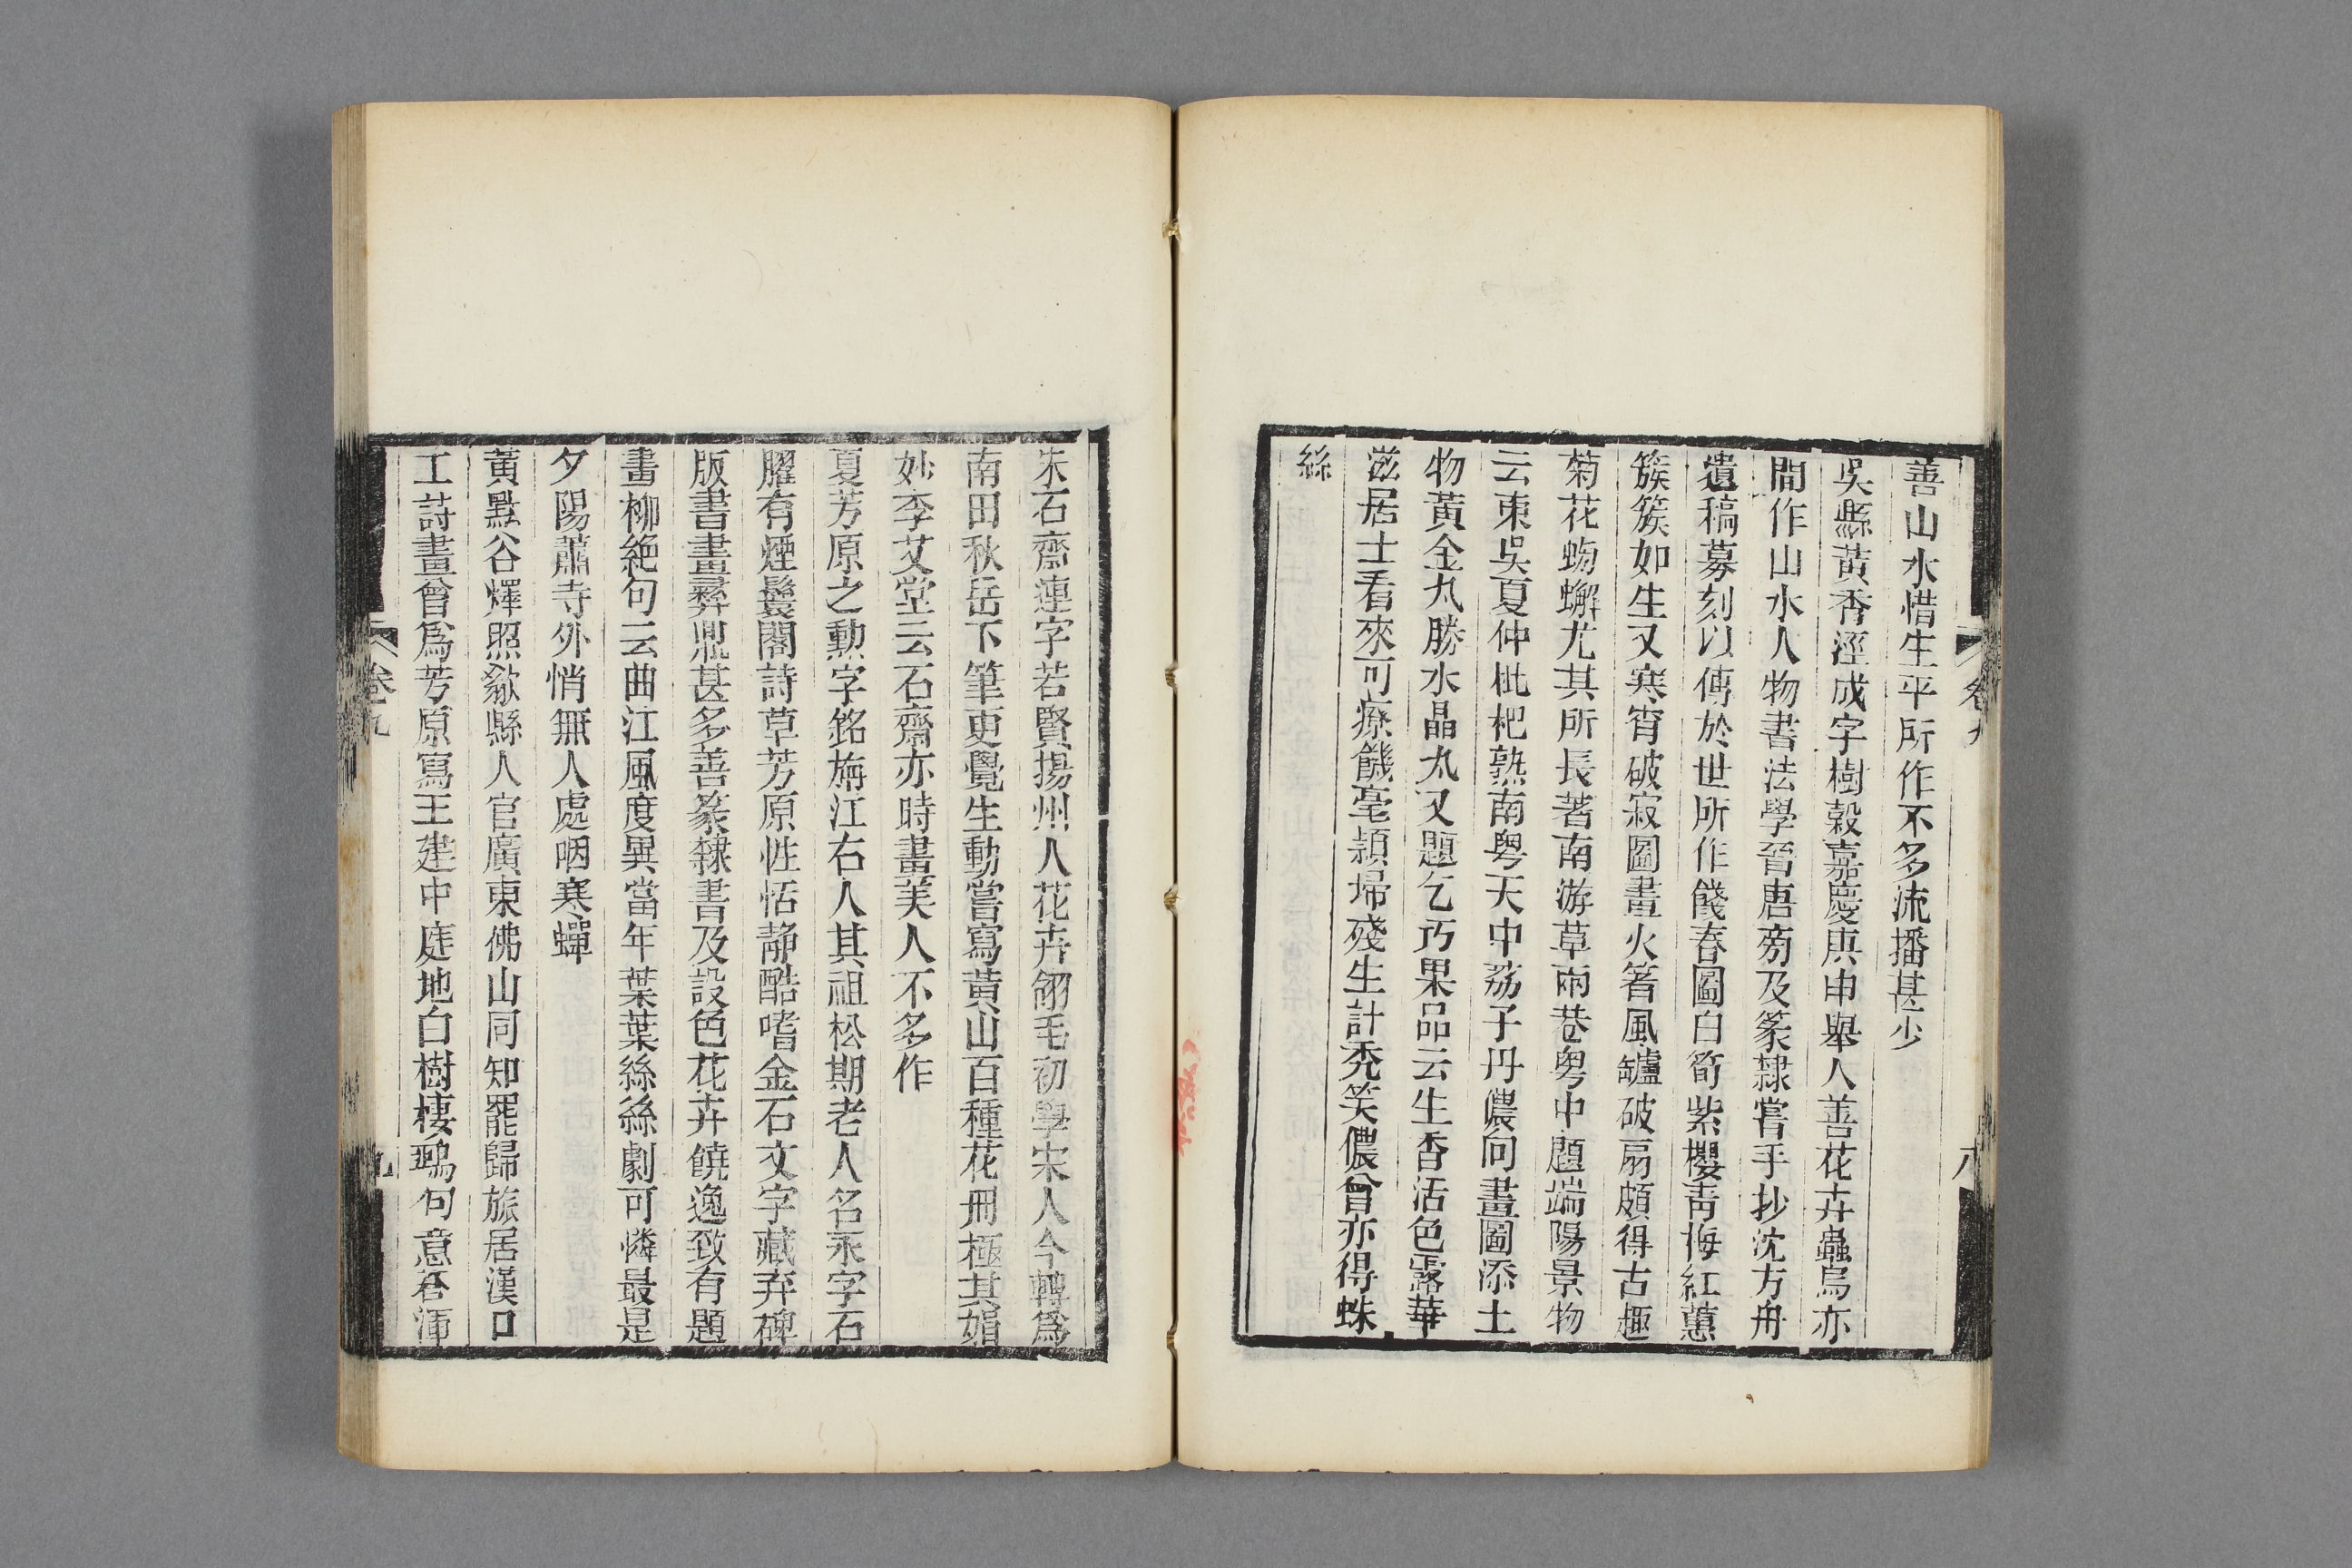 善山水惜生平所作不多流播甚少
吳縣黃秀涇成字樹穀嘉慶庚申舉人善花卉蟲鳥亦
間作山水人物書法學晉唐旁及篆隸嘗手抄沈方舟
遺稿募刻以傳於世所作餞春圖白筍紫櫻靑梅紅蕙
簇簇如生又寒宵破寂圖畫火箸風爐破扇頗得古趣
菊花蜘蠏尤其所長著南游草雨巷粤中題端陽景物
云東吳夏仲枇杷熟南粤天中荔子丹儂向畫圖添土
物黃金丸勝水晶丸又題乞巧果品云生香活色露華
滋居士看來可療饑毫頴埽殘生計禿笑儂曾亦得蛛
絲
朱石齋蓮字若賢揚州人花卉翎毛初學宋人今轉爲
南田秋岳下筆更覺生動嘗寫黃山百種花冊極其娟
妙李艾堂云石齋亦時畫美人不多作
夏芳原之勳字銘旃江右人其祖松期老人名永字石
臞有煙鬟閣詩草芳原性恬靜酷嗜金石文字藏弆碑
版書畫彝鼎甚多善篆隸書及設色花卉饒逸致有題
畫柳絶句云曲江風度異當年葉葉絲絲劇可憐最是
夕陽蕭寺外悄無人處咽寒蟬
黃點谷燡照歙縣人官廣東佛山同知罷歸旅居漢口
工詩畫曾爲芳原寫王建中庭地白樹棲鴉句意蒼渾
卷九
九